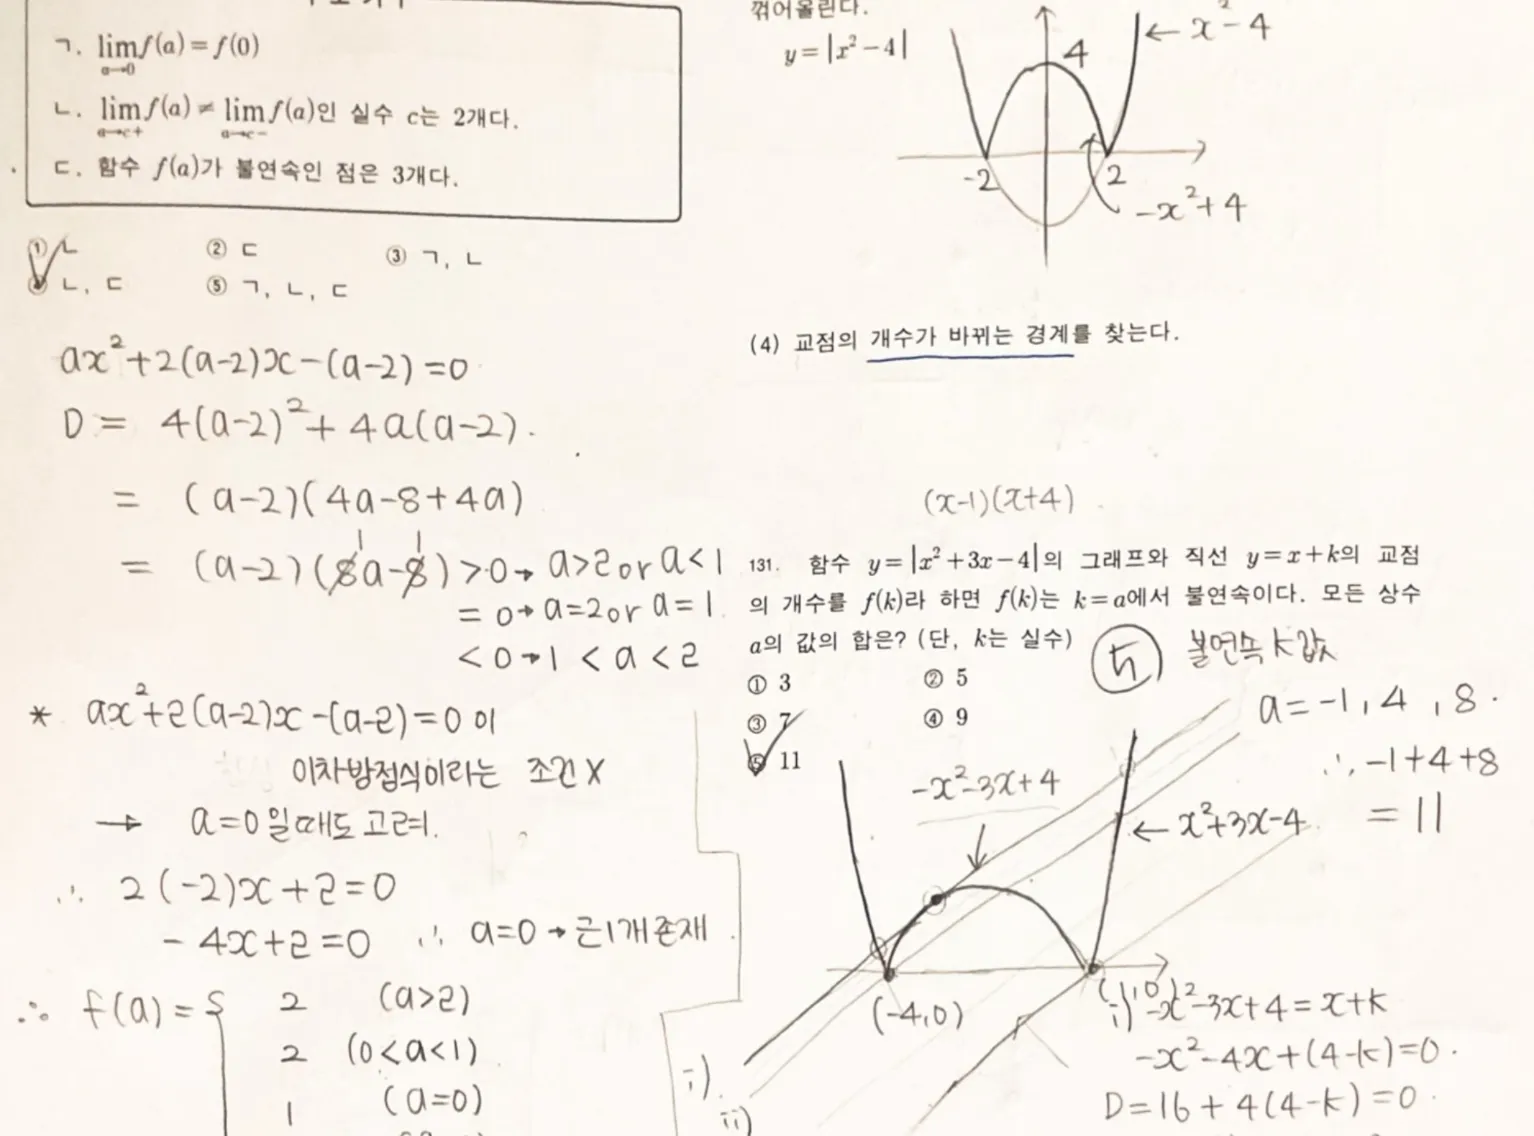 ㄱ. lim f(a) = f(0)
a→0
ㄴ. lim f(a) ≠ lim f(a)인 실수 c는 2개다.
a→c+ a→c−
ㄷ. 함수 f(a)가 불연속인 점은 3개다.
① ㄴ ② ㄷ ③ ㄱ, ㄴ
ㄴ, ㄷ ⑤ ㄱ, ㄴ, ㄷ
ax²+2(a-2)x-(a-2)=0
D = 4(a-2)²+4a(a-2).
= (a-2)(4a-8+4a)
= (a-2)(8a-8)>0→ a>2 or a<1
1 1
=0→a=2 or a=1.
<0→1<a<2
* ax²+2(a-2)x-(a-2)=0이
이차방정식이라는 조건X
→ a=0일때도고려.
∴ 2(-2)x+2=0
-4x+2=0 ∴ a=0→근1개존재
∴ f(a)=
2 (a>2)
2 (0<a<1)
1 (a=0)
꺾어올린다.
y=|x²−4|
← x²-4
4
-2 2
-x²+4
(4) 교점의 개수가 바뀌는 경계를 찾는다.
(x-1)(x+4)
131. 함수 y=|x²+3x−4|의 그래프와 직선 y=x+k의 교점
의 개수를 f(k)라 하면 f(k)는 k=a에서 불연속이다. 모든 상수
a의 값의 합은? (단, k는 실수)
불연속 k값
① 3 ② 5
③ 7 ④ 9
⑤ 11
a=-1, 4, 8.
∴ -1+4+8
=11
-x²-3x+4
← x²+3x-4
(-4,0) (1,0)
i) -x²-3x+4=x+k
-x²-4x+(4-k)=0.
D=16+4(4-k)=0.
i)
ii)